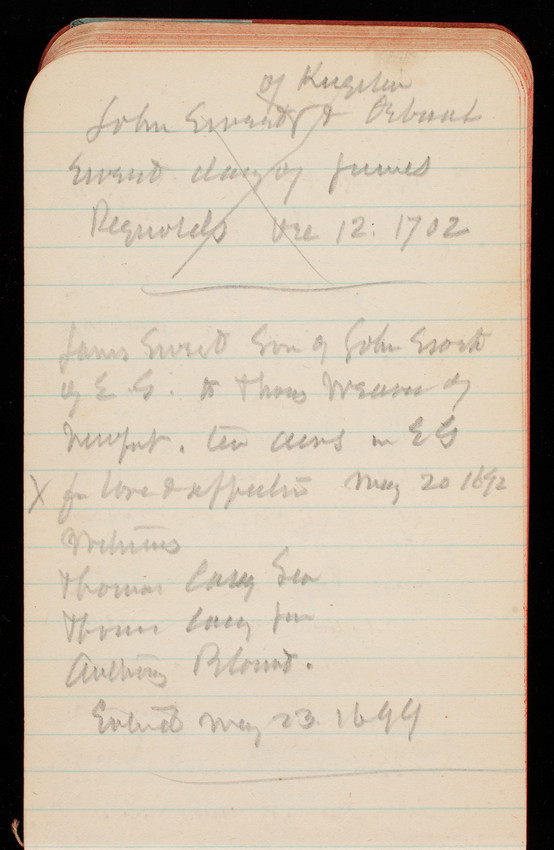 of Kingston
John Sweet & Deburah
Sweet daug of James
Reynolds Dec 12. 1702
James Sweet Son of John Sweet
of E. G. to Thoms Weaver of
Newport. ten acres in EG
X for love & affection May 20 1692
Witness
Thomas Casey Sen
Thomas Casey Jun
Anthony Blount.
Entred May 23 1699